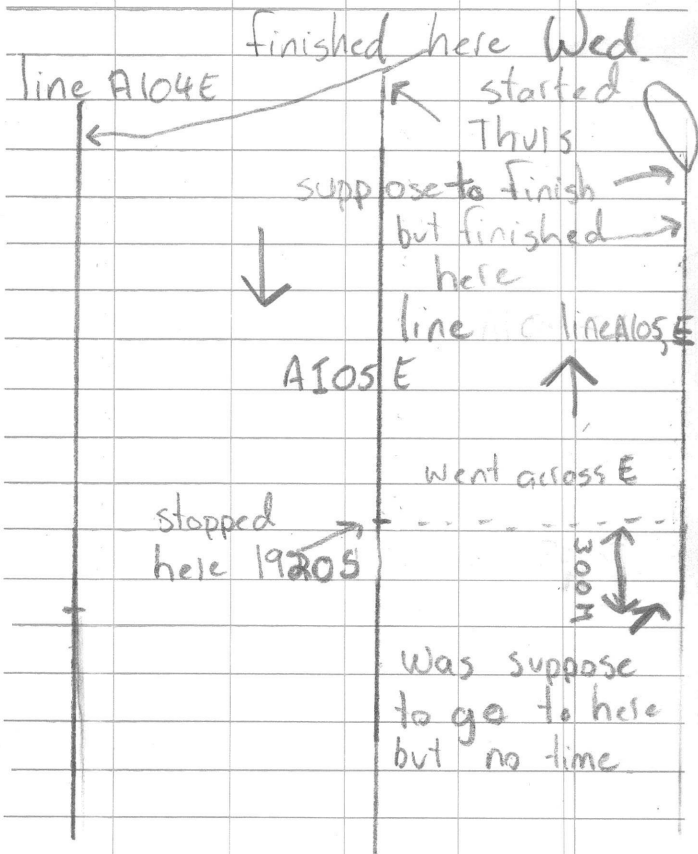 finished here Wed.
line A104E
started
Thurs
suppose to finish
but finished
here
line line A105,E
A105E
went across E
stopped
here 1920S
300M
Was suppose
to go to here
but no time